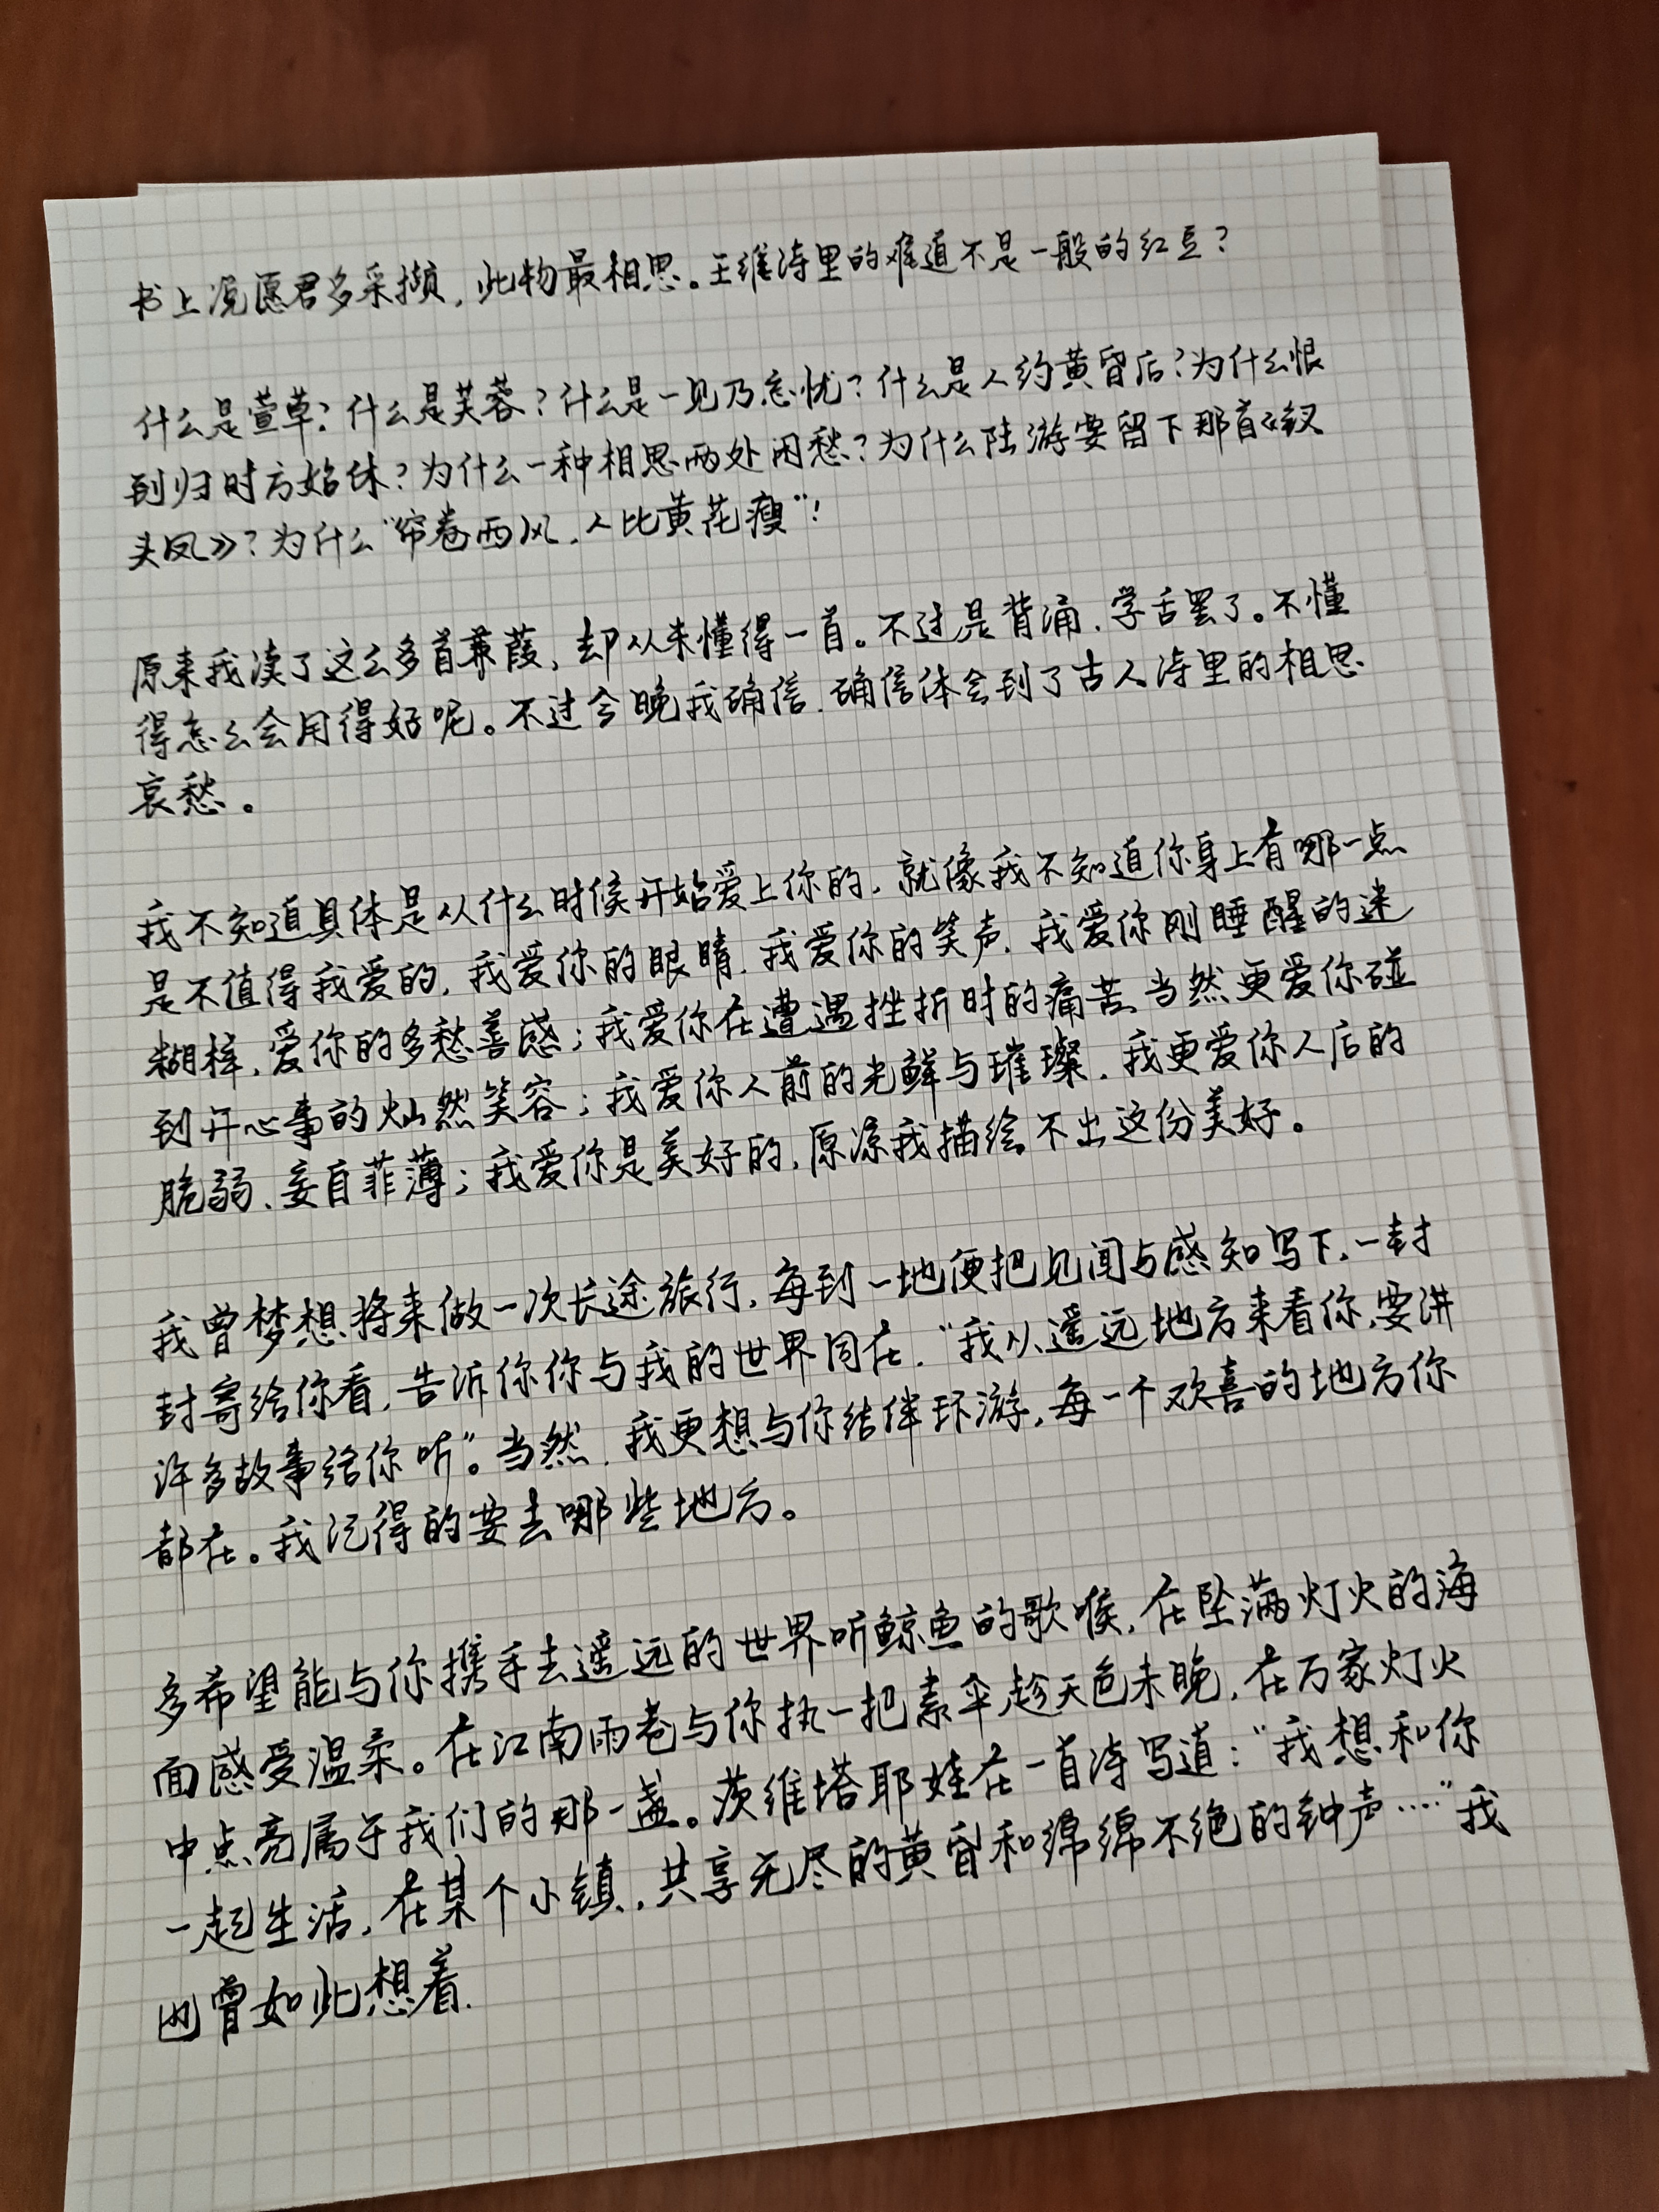 书上说愿君多采撷，此物最相思。王维诗里的难道不是一般的红豆？
什么是萱草？什么是芙蓉？什么是一见乃忘忧？什么是人约黄昏后？为什么恨
到归时方始休？为什么一种相思两处闲愁？为什么陆游要留下那首《钗
头凤》？为什么“帘卷西风，人比黄花瘦”！
原来我读了这么多首蒹葭，却从未懂得一首。不过是背诵、学舌罢了。不懂
得怎么会用得好呢。不过今晚我确信，确信体会到了古人诗里的相思
哀愁。
我不知道具体是从什么时候开始爱上你的，就像我不知道你身上有哪一点
是不值得我爱的，我爱你的眼睛，我爱你的笑声，我爱你刚睡醒的迷
糊样，爱你的多愁善感；我爱你在遭遇挫折时的痛苦，当然更爱你碰
到开心事的灿然笑容；我爱你人前的光鲜与璀璨，我更爱你人后的
脆弱、妄自菲薄；我爱你是美好的，原谅我描绘不出这份美好。
我曾梦想将来做一次长途旅行，每到一地便把见闻与感知写下，一封
封寄给你看，告诉你你与我的世界同在，“我从遥远地方来看你，要讲
许多故事给你听”。当然，我更想与你结伴环游，每一个欢喜的地方你
都在。我记得的要去哪些地方。
多希望能与你携手去遥远的世界听鲸鱼的歌喉，在坠满灯火的海
面感受温柔。在江南雨巷与你执一把素伞趁天色未晚，在万家灯火
中点亮属于我们的那一盏。茨维塔耶娃在一首诗写道：“我想和你
一起生活，在某个小镇，共享无尽的黄昏和绵绵不绝的钟声……”我
也曾如此想着.